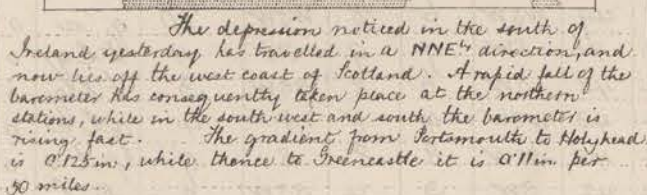 The depression noticed in the south of
Ireland yesterday has travelled in a NNEly direction, and
now lies off the west coast of Scotland. A rapid fall of the
barometer has consequently taken place at the northern
stations, while in the south west and south the barometer is
rising fast. The gradient from Portsmouth to Holyhead
is 0.125in, while thence to Greencastle it is 0.11in per
50 miles.